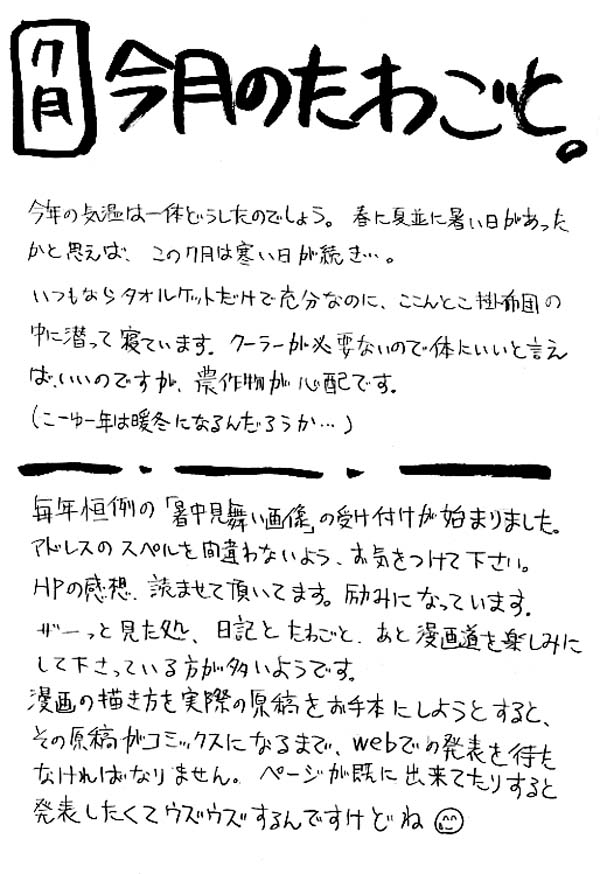 7月
今月のたわごと。
今年の気温は一体どうしたのでしょう。 春に夏並に暑い日があった
かと思えば、この7月は寒い日が続き…。
いつもならタオルケットだけで充分なのに、ここんとこ掛布団の
中に潜って寝ています。クーラーが必要ないので体にいいと言え
ば、いいのですが、農作物が心配です。
(こーゆー年は暖冬になるんだろうか…)
毎年恒例の「暑中見舞い画像」の受け付けが始まりました。
アドレスのスペルを間違わないよう、お気をつけて下さい。
HPの感想、読ませて頂いてます。励みになっています。
ザーっと見た処、日記とたわごと、あと漫画道を楽しみに
して下さっている方が多いようです。
漫画の描き方を実際の原稿をお手本にしようとすると、
その原稿がコミックスになるまで、webでの発表を待た
なければなりません。ページが既に出来てたりすると
発表したくてウズウズするんですけどね